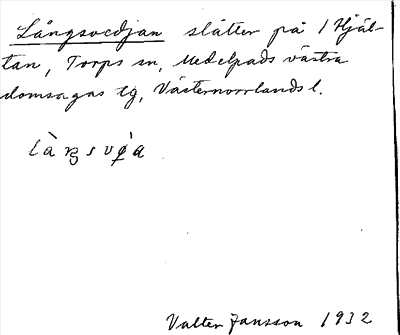 Långsvedjan slåtter på 1 Hjäl-
tan, Torps sn, Medelpads västra
domsagas tg, Västernorrlands l.
Valter Jansson 1932